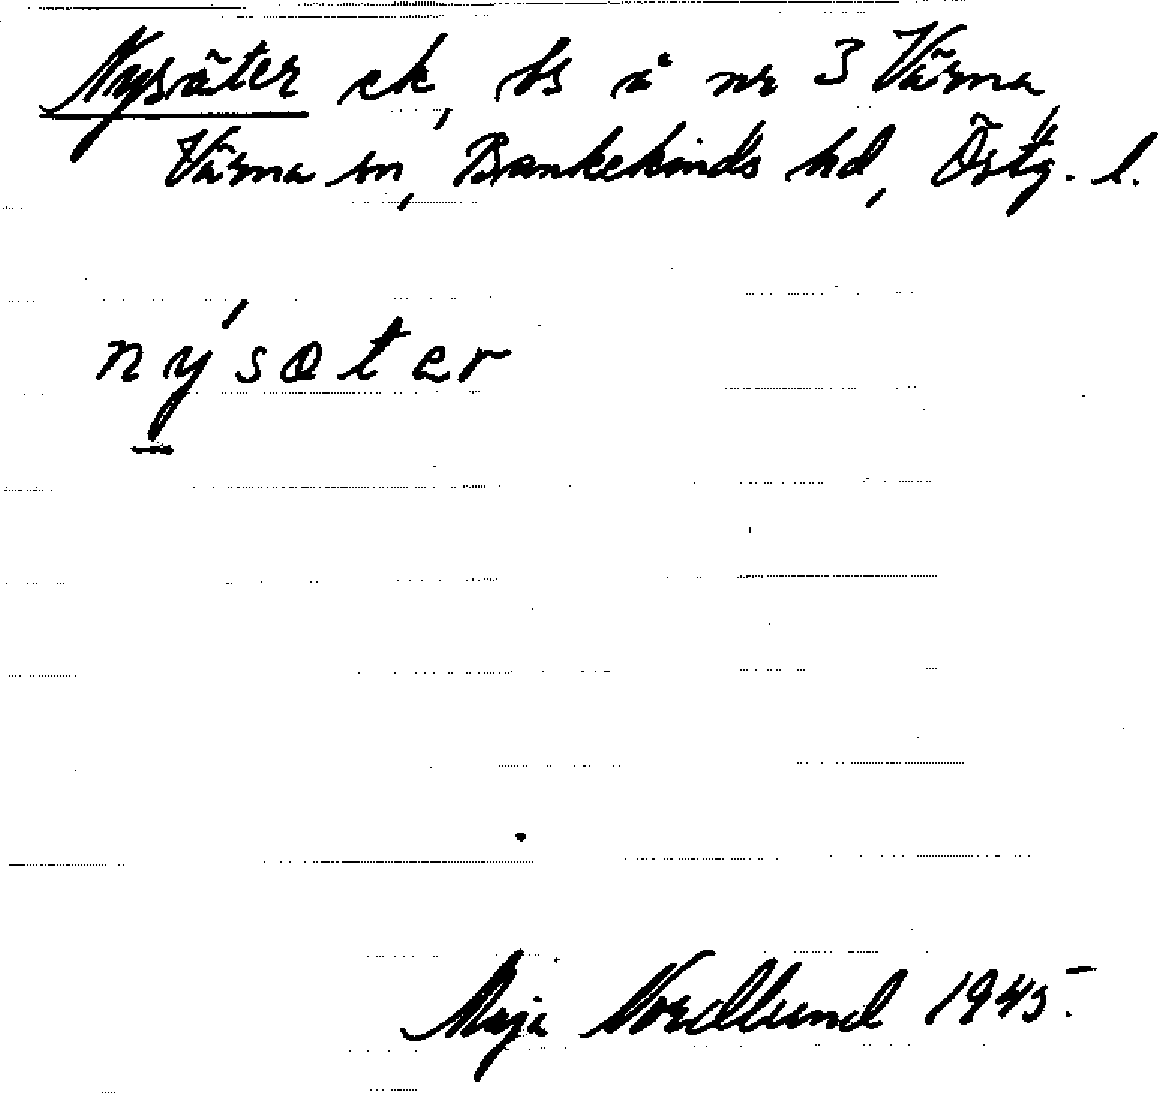 Nysäter ek, bs å nr 3 Värna
Värna sn, Bankekinds hd, Östg. l.
ny'sæter
Maja Nordlund 1945.